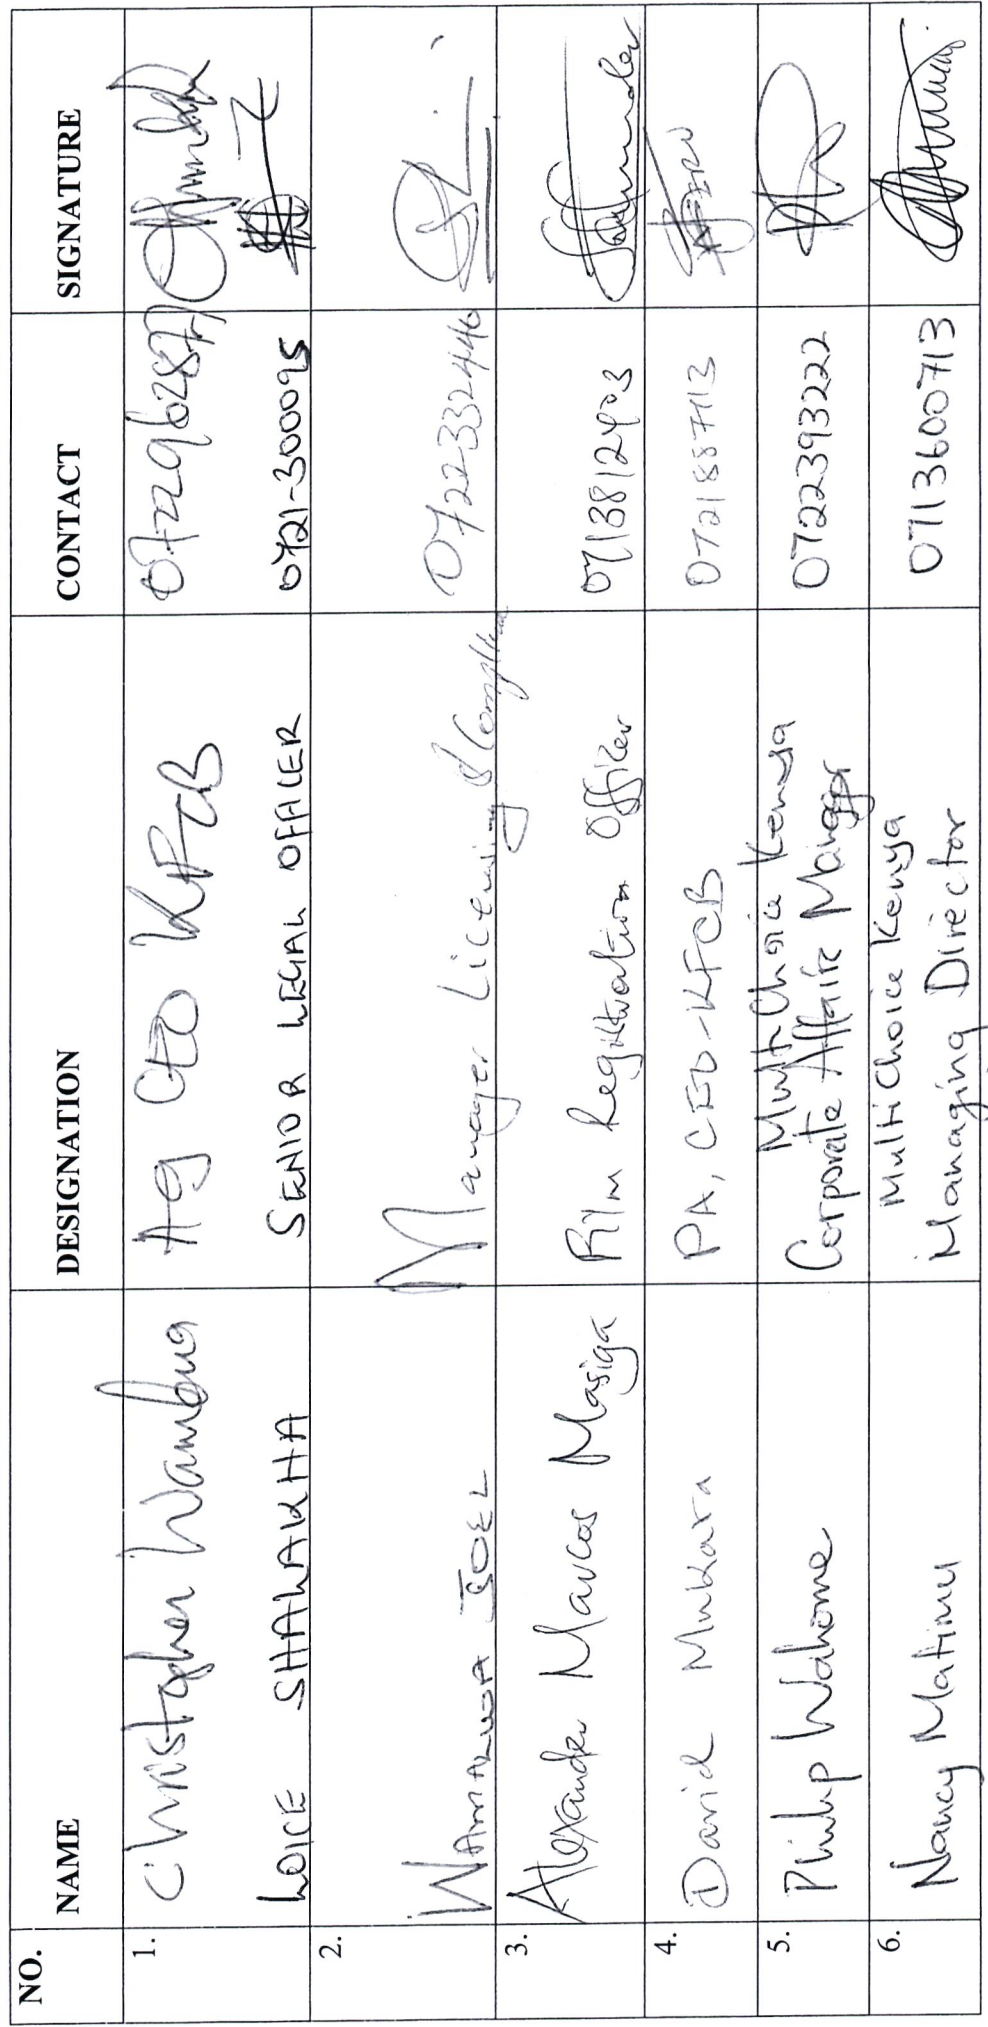 NO. NAME DESIGNATION CONTACT SIGNATURE
1. Christopher Wambua Ag CEO KFCB 0722962877
LOICE SHALAKHA SENIOR LEGAL OFFICER 0721-300095
2. WAMALWA JOEL Manager Licensing & Compliance 0722332446
3. Alexander Marcos Masiga Film Registration Officer 0713812403
4. David Mukara PA, CEO-KFCB 0721887113
5. Philip Wahome MultiChoice Kenya
Corporate Affairs Manager 0722393222
6. Nancy Matimu MultiChoice Kenya
Managing Director 0713600713